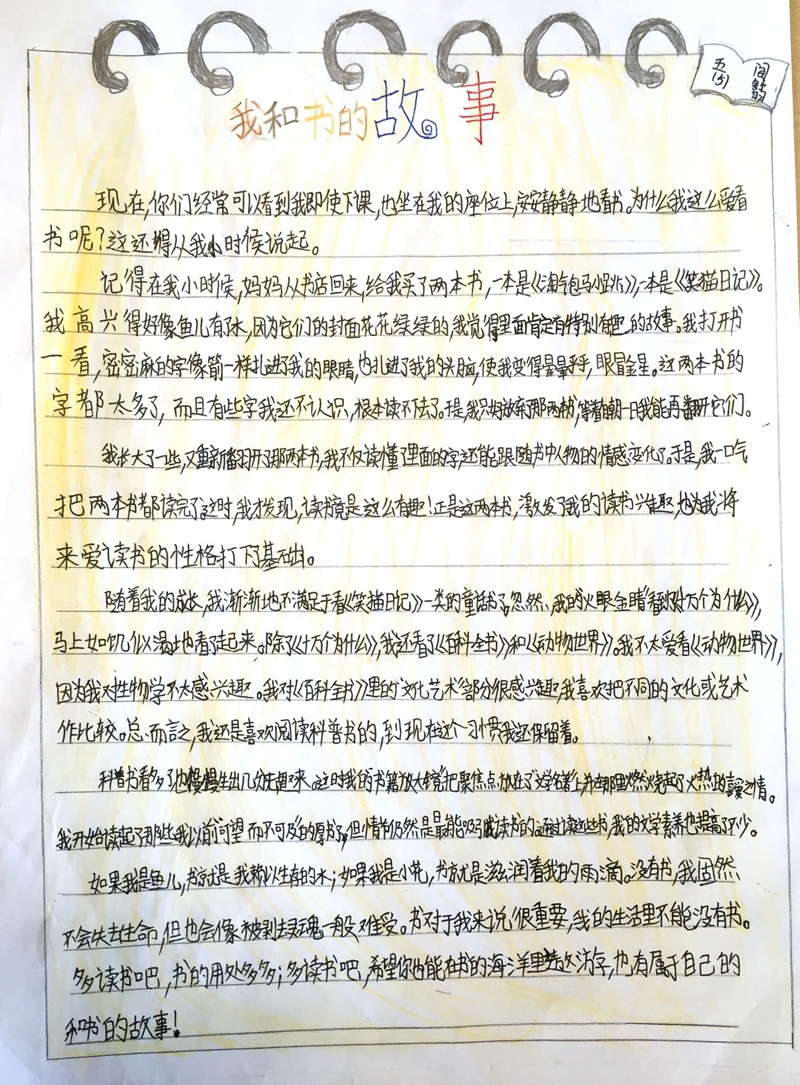 五(5)
我和书的故事
现在,你们经常可以看到我即使下课,也坐在我的座位上,安安静静地看书。为什么我这么爱看
书呢?这还得从我小时候说起。
记得在我小时候,妈妈从书店回来,给我买了两本书,一本是《淘气包马小跳》,一本是《笑猫日记》。
我高兴得好像鱼儿有了水,因为它们的封面花花绿绿的,我觉得里面肯定有特别有趣的故事。我打开书
一看,密密麻的字像箭一样扎进了我的眼睛,也扎进了我的头脑,使我变得晕晕乎乎,眼冒金星。这两本书的
字都太多了,而且有些字我还不认识,根本读不下去了。于是,我只好放弃了那两本书,等着有朝一日我能再翻开它们。
我长大了一些,又重新翻开了那两本书,我不仅读懂了里面的字,还能跟随书中人物的情感变化了。于是,我一口气
把两本书都读完了。这时,我才发现,读书竟是这么有趣!正是这两本书,激发了我的读书兴趣,也为我将
来爱读书的性格打下了基础。
随着我的成长,我渐渐地不满足于看《笑猫日记》一类的童话书了。忽然,我的"火眼金睛"看到《十万个为什么》,
马上如饥似渴地看了起来。除了《十万个为什么》,我还看了《百科全书》和《动物世界》。我不太爱看《动物世界》,
因为我对生物学不太感兴趣。我对《百科全书》里的"文化艺术"部分很感兴趣,我喜欢把不同的文化或艺术
作比较。总而言之,我还是喜欢阅读科普书的,到现在这个习惯我还保留着。
科普书看多了,也慢慢生出几分来。这时我的"书籍放大镜"把聚焦点放在了"文学名著"上,并在那里燃烧起了火热的喜爱之情。
我开始读起了那些我以前"可望而不可及"的厚书了,但情节仍然是最能吸引我读书的。通过读这些书,我的文学素养也提高了不少。
如果我是鱼儿,书就是我赖以生存的水;如果我是小花,书就是滋润着我的雨滴。没有书,我固然
不会失去生命,但也会像被剥去灵魂一般难受。书对于我来说很重要,我的生活里不能没有书。
多读书吧,书的用处多多;多读书吧,希望你也能在书的海洋里游,也有属于自己的
和书的故事!